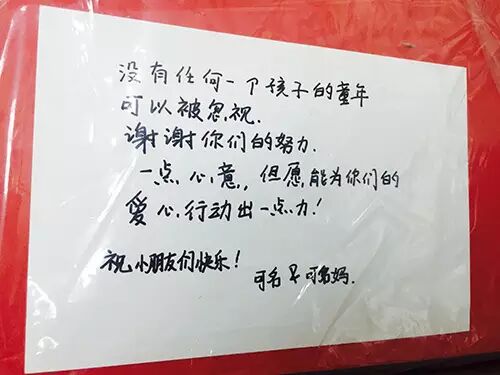 没有任何一个孩子的童年
可以被忽视.
谢谢你们的努力.
一点心意,但愿能为你们的
爱心行动出一点力!
祝小朋友们快乐!
可名 & 可名妈.